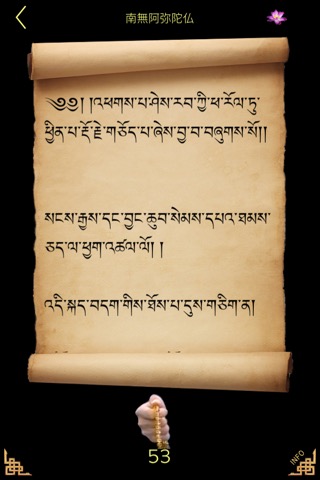 南無阿弥陀仏
༄༅། །འཕགས་པ་ཤེས་རབ་ཀྱི་ཕ་རོལ་ཏུ་
ཕྱིན་པ་རྡོ་རྗེ་གཅོད་པ་ཞེས་བྱ་བ་བཞུགས་སོ།།
སངས་རྒྱས་དང་བྱང་ཆུབ་སེམས་དཔའ་ཐམས་
ཅད་ལ་ཕྱག་འཚལ་ལོ། །
འདི་སྐད་བདག་གིས་ཐོས་པ་དུས་གཅིག་ན།
53
INFO